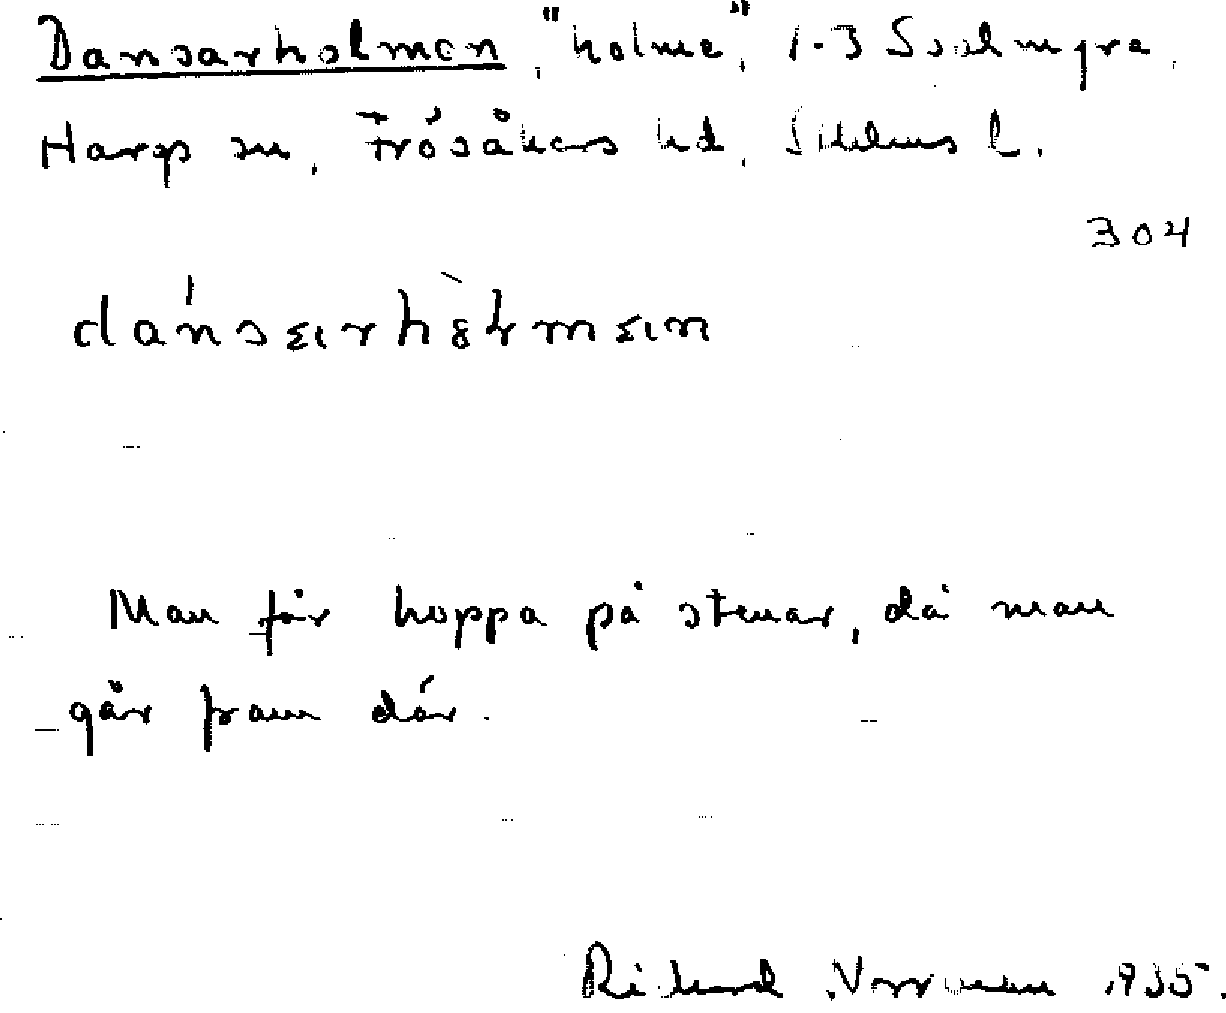 Dansarholmen, "holme", 1-3 Sselmyra,
Hargs sn, Frösåkers hd, Sthlms l.
304
Man får hoppa på stenar, då man
går fram där.
Rikard Norrman 1935.